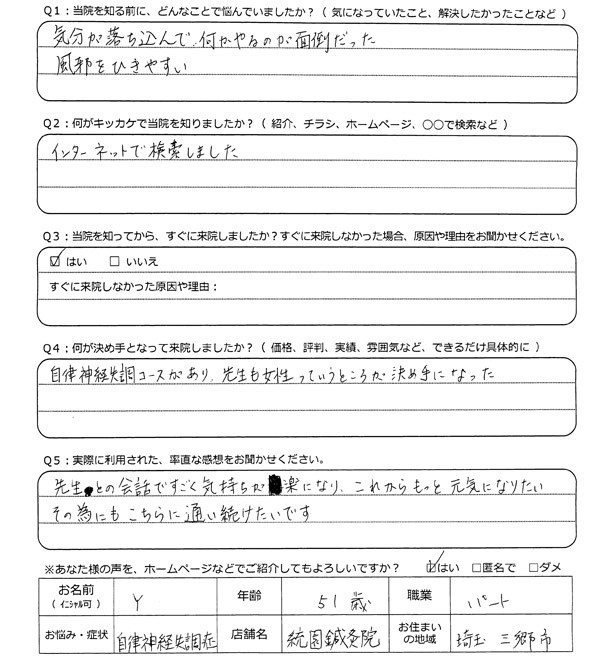 Q1:当院を知る前に、どんなことで悩んでいましたか?( 気になっていたこと、解決したかったことなど )
気分が落ち込んで、何かやるのが面倒だった
風邪をひきやすい
Q2:何がキッカケで当院を知りましたか?( 紹介、チラシ、ホームページ、〇〇で検索など )
インターネットで検索しました
Q3:当院を知ってから、すぐに来院しましたか?すぐに来院しなかった場合、原因や理由をお聞かせください。
☑ はい □ いいえ
すぐに来院しなかった原因や理由:
Q4:何が決め手となって来院しましたか?( 価格、評判、実績、雰囲気など、できるだけ具体的に )
自律神経失調コースがあり、先生も女性っていうところが決め手になった
Q5:実際に利用された、率直な感想をお聞かせください。
先生との会話ですごく気持ちが楽になり、これからもっと元気になりたい
その為にもこちらに通い続けたいです
※あなた様の声を、ホームページなどでご紹介してもよろしいですか? ☑はい □匿名で □ダメ
お名前 (イニシャル可) Y 年齢 51歳 職業 パート
お悩み・症状 自律神経失調症 店舗名 統園鍼灸院 お住まいの地域 埼玉 三郷市